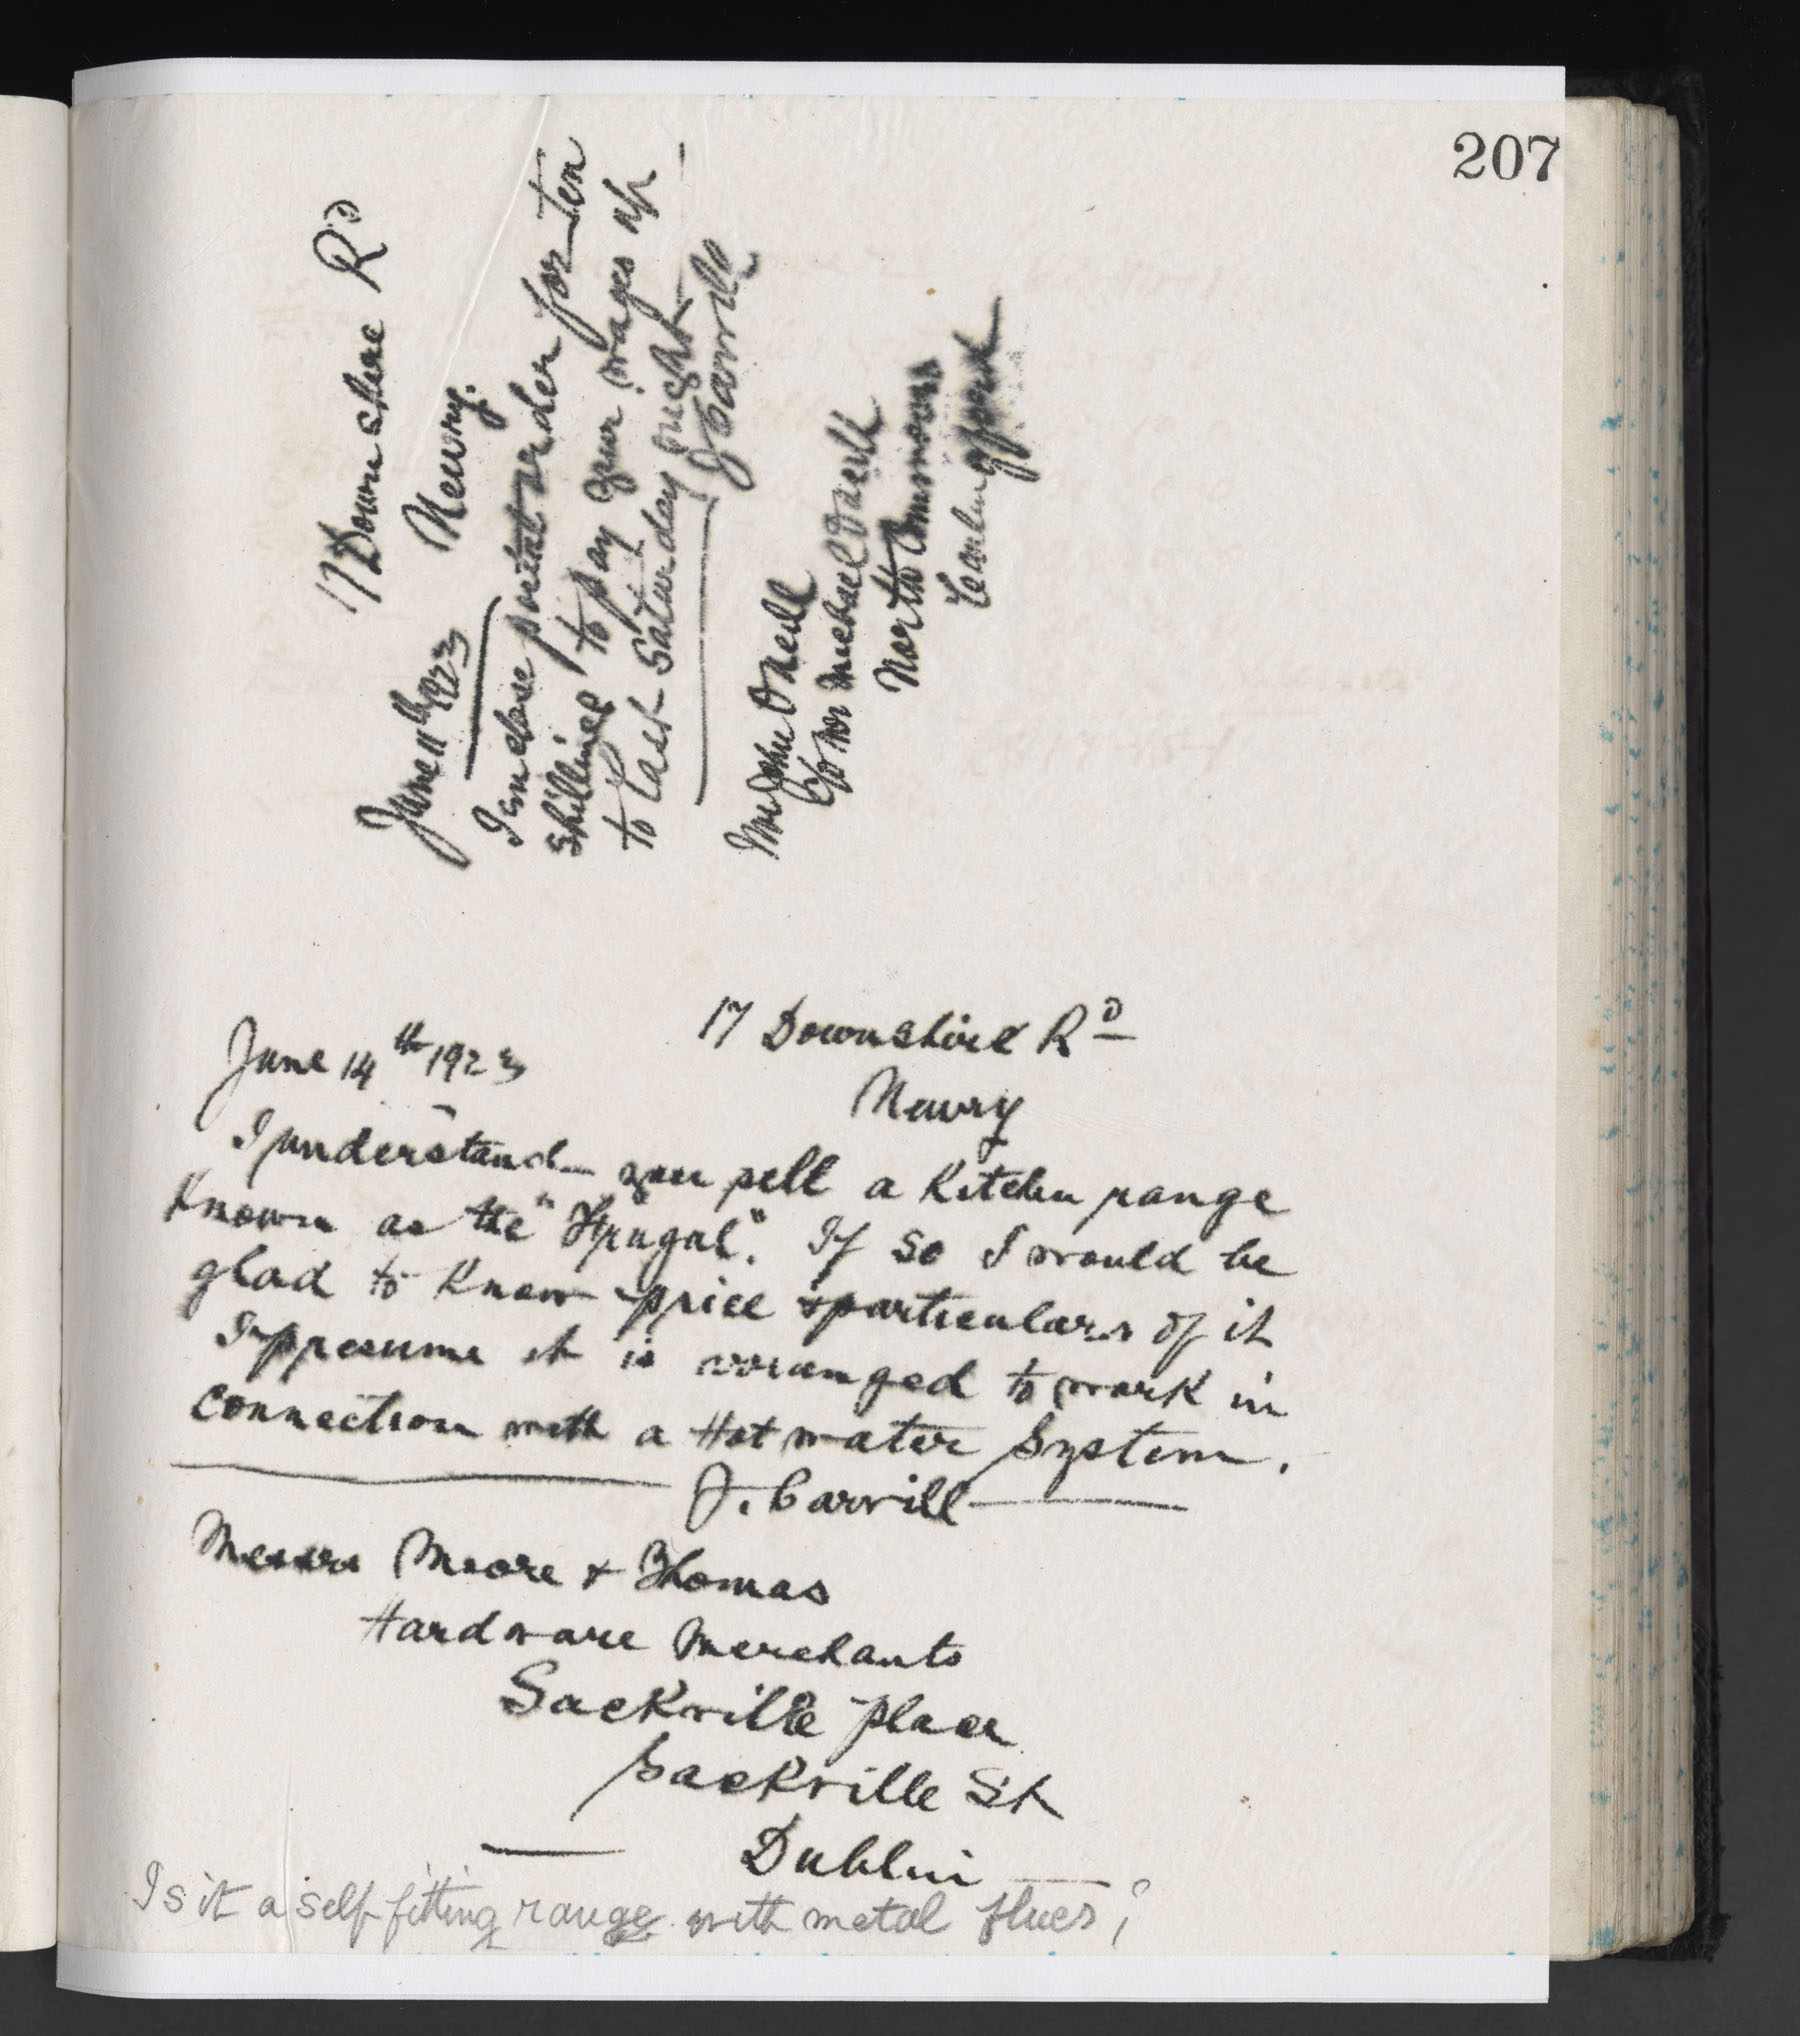 207
17 Downshire Rd
Newry.
June 11th 1923
I enclose postal order for ten
Shillings to pay your wages up
to Last Saturday night
J Carvill
Mr John O Neill
C/o Mr Michael
North Commons
Carlingford
17 Downshire Rd
June 14th 1923
Newry
I understand you sell a Kitchen range
Known as the "Frugal". If so I would be
glad to Know price & particulars of it
I presume it is arranged to work in
connection with a Hot water System.
J. Carvill
Messrs Moore & Thomas
Hardware Merchants
Sackville place
Sackville St
Dublin
Is it a self fitting range with metal flues?